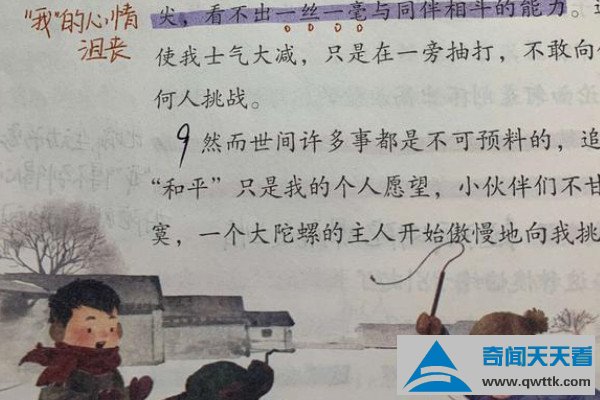 “我”的心情
沮丧
尖，看不出一丝一毫与同伴相斗的能力。
使我士气大减，只是在一旁抽打，不敢向
何人挑战。
9 然而世间许多事都是不可预料的，追
“和平”只是我的个人愿望，小伙伴们不甘
寞，一个大陀螺的主人开始傲慢地向我挑
奇闻天天看
www.qwttk.com